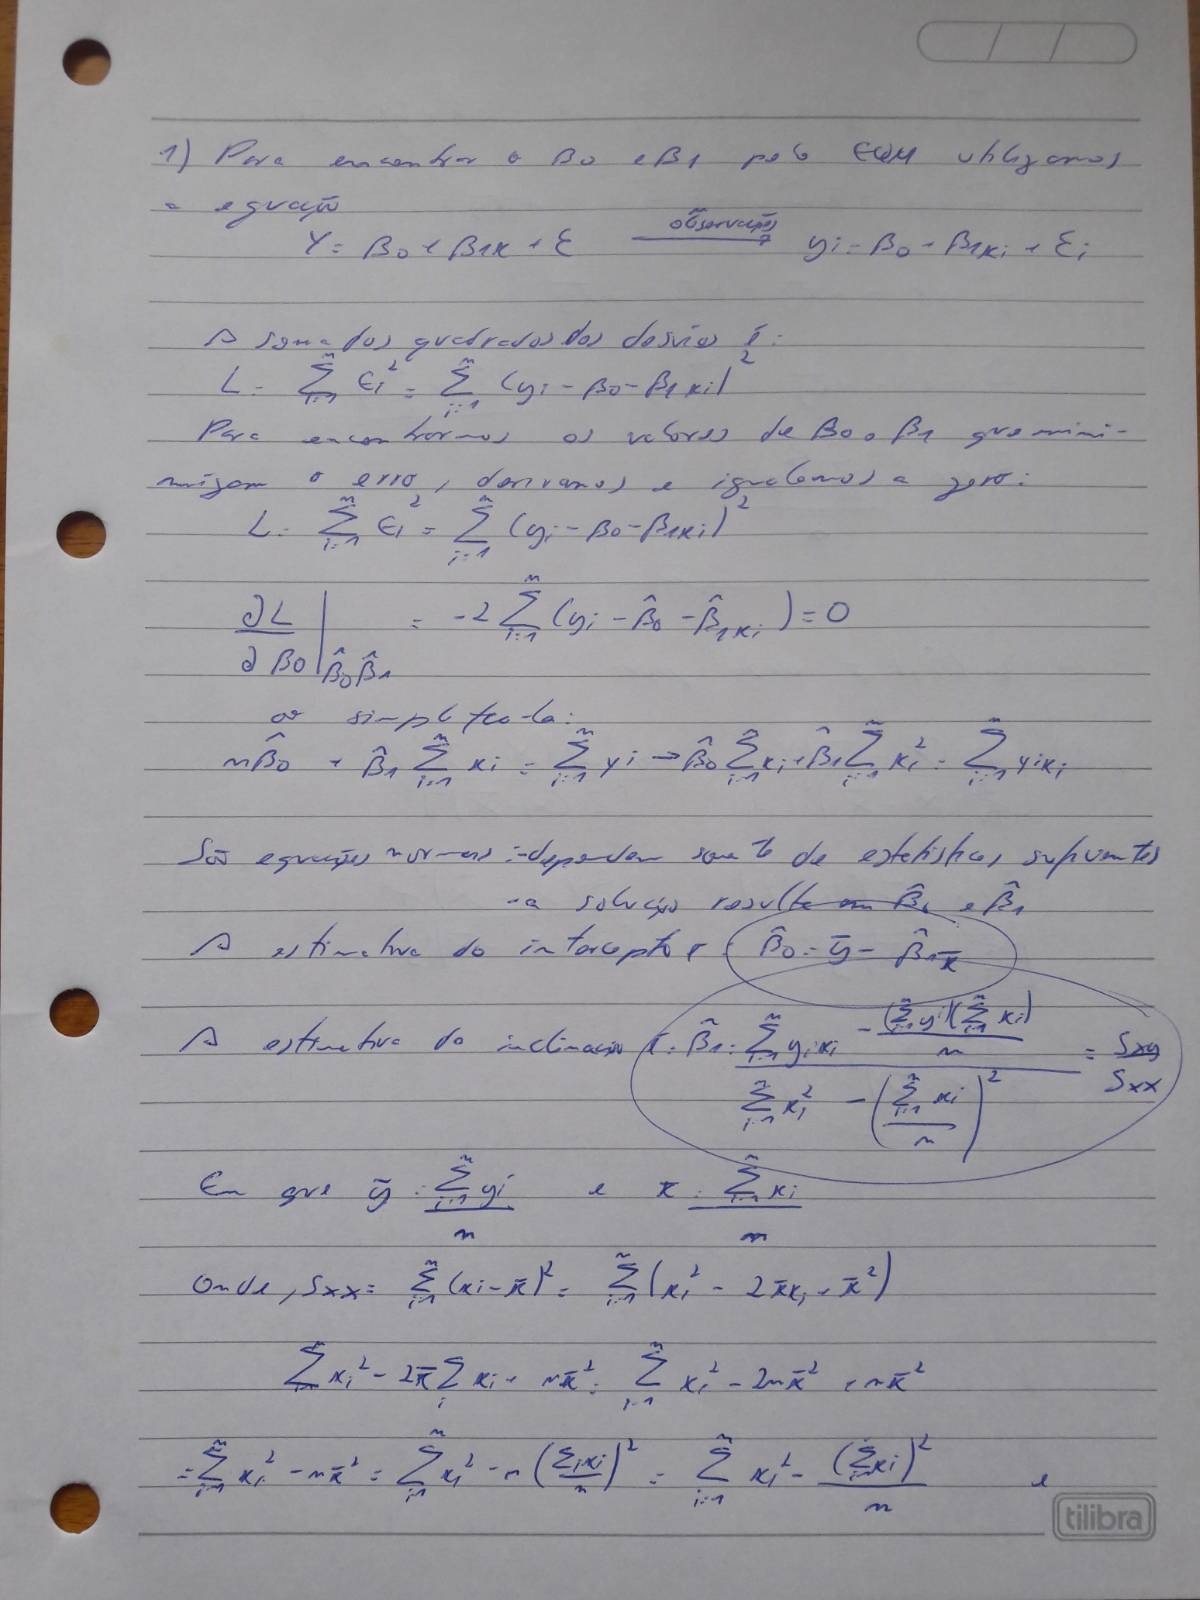 1) Para encontrar o β0 e β1 pelo EQM utilizamos
a equação
Y = β0 + β1x + ε observações → yi = β0 + β1xi + εi
A soma dos quadrados dos desvios é:
L = Σ(i=1..n) εi² = Σ(i=1..n) (yi - β0 - β1xi)²
Para encontrarmos os valores de β0 e β1 que mini-
mizam o erro, derivamos e igualamos a zero:
L = Σ(i=1..n) εi² = Σ(i=1..n) (yi - β0 - β1xi)²
∂L/∂β0 |β̂0β̂1 = -2 Σ(i=1..n) (yi - β̂0 - β̂1xi) = 0
ao simplifica-la:
nβ̂0 + β̂1 Σ(i=1..n) xi = Σ(i=1..n) yi → β̂0 Σ(i=1..n) xi + β̂1 Σ(i=1..n) xi² = Σ(i=1..n) yixi
São equações normais: dependem somente de estatísticas suficientes
-a solução resulta em β̂0 e β̂1
A estimativa do intercepto é: β̂0 = ȳ - β̂1x̄
A estimativa da inclinação é: β̂1 = (Σ(i=1..n) yixi - (Σ(i=1..n) yi)(Σ(i=1..n) xi)/n) / (Σ(i=1..n) xi² - (Σ(i=1..n) xi/n)²) = Sxy/Sxx
Em que ȳ = Σ(i=1..n) yi/n e x̄ = Σ(i=1..n) xi/n
Onde, Sxx = Σ(i=1..n) (xi - x̄)² = Σ(i=1..n) (xi² - 2x̄xi + x̄²)
Σ xi² - 2x̄ Σi xi + nx̄² = Σ(i=1..n) xi² - 2nx̄² + nx̄²
= Σ(i=1..n) xi² - nx̄² = Σ(i=1..n) xi² - n(Σi xi/n)² = Σ(i=1..n) xi² - (Σi xi)²/n e
tilibra